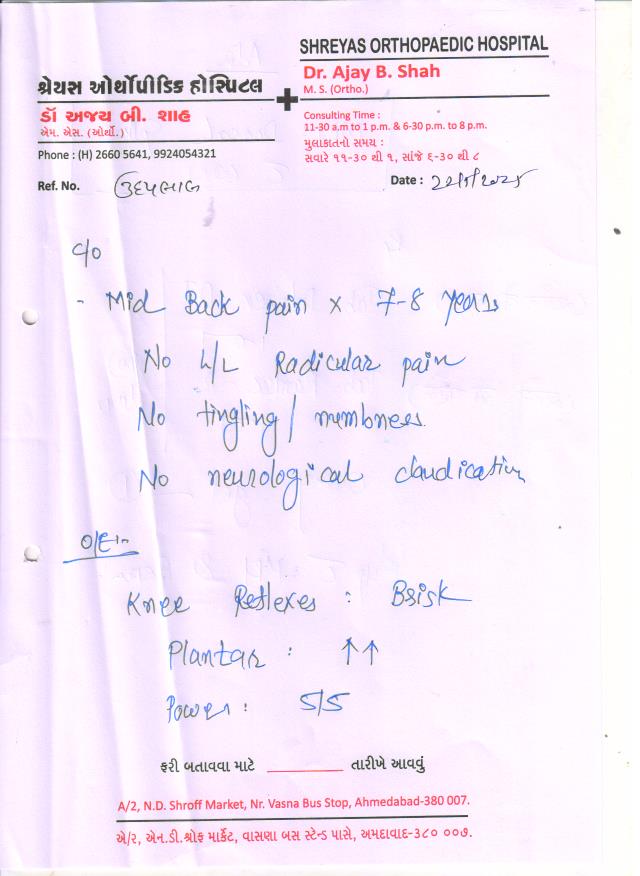 SHREYAS ORTHOPAEDIC HOSPITAL
Dr. Ajay B. Shah
M. S. (Ortho.)
શ્રેયસ ઓર્થોપીડિક હોસ્પિટલ
ડૉ અજય બી. શાહ
એમ. એસ. (ઓર્થો.)
Consulting Time :
11-30 a.m to 1 p.m. & 6-30 p.m. to 8 p.m.
મુલાકાતનો સમય :
સવારે ૧૧-૩૦ થી ૧, સાંજે ૬-૩૦ થી ૮
Phone : (H) 2660 5641, 9924054321
Ref. No. ઉદયભાઇ
Date : 22/5/2025
c/o
- Mid Back pain x 7-8 years
No L/L Radicular pain
No tingling / numbness
No neurological claudication
O/E:-
Knee Reflexes : Brisk
Plantar : ↑↑
Power : 5/5
ફરી બતાવવા માટે ________ તારીખે આવવું
A/2, N.D. Shroff Market, Nr. Vasna Bus Stop, Ahmedabad-380 007.
એ/૨, એન.ડી.શ્રોફ માર્કેટ, વાસણા બસ સ્ટેન્ડ પાસે, અમદાવાદ-૩૮૦ ૦૦૭.